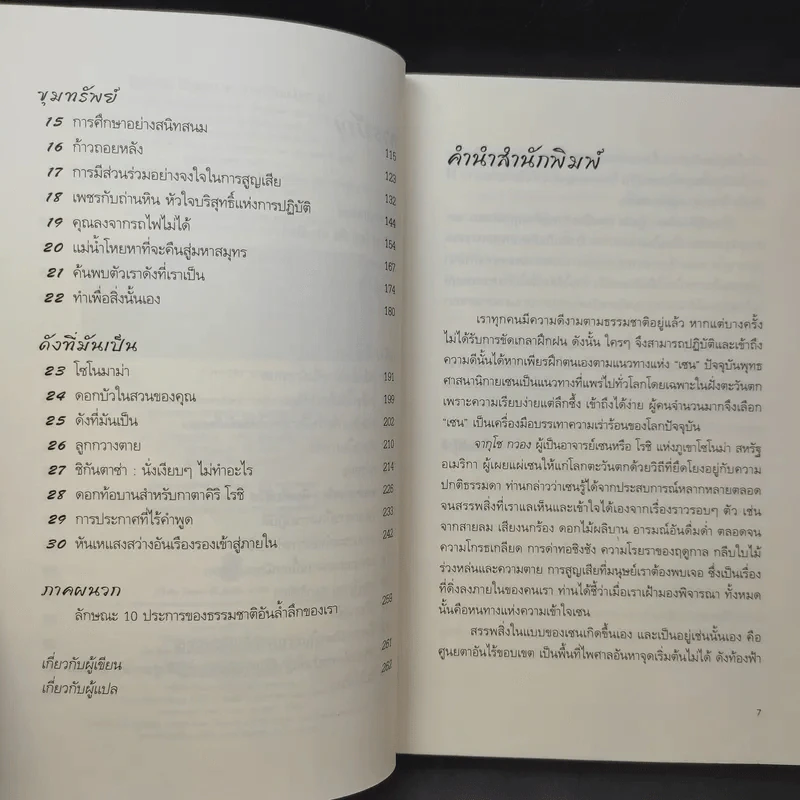 ขุมทรัพย์
15 การศึกษาอย่างสนิทสนม 115
16 ก้าวถอยหลัง 123
17 การมีส่วนร่วมอย่างจงใจในการสูญเสีย 132
18 เพชรกับถ่านหิน หัวใจบริสุทธิ์แห่งการปฏิบัติ 144
19 คุณลงจากรถไฟไม่ได้ 154
20 แม่น้ำโหยหาที่จะคืนสู่มหาสมุทร 167
21 ค้นพบตัวเราดังที่เราเป็น 174
22 ทำเพื่อสิ่งนั้นเอง 180
ดังที่มันเป็น
23 โซโนมาม่า 191
24 ดอกบัวในสวนของคุณ 199
25 ดังที่มันเป็น 202
26 ลูกกวางตาย 210
27 ชิกันตาซ่า : นั่งเงียบๆ ไม่ทำอะไร 214
28 ดอกท้อบานสำหรับกาตาคิริ โรชิ 226
29 การประกาศที่ไร้คำพูด 233
30 หันเหแสงสว่างอันเรืองรองเข้าสู่ภายใน 242
ภาคผนวก
ลักษณะ 10 ประการของธรรมชาติอันล้ำลึกของเรา 259
เกี่ยวกับผู้เขียน 261
เกี่ยวกับผู้แปล 262
คำนำสำนักพิมพ์
เราทุกคนมีความดีงามตามธรรมชาติอยู่แล้ว หากแต่บางครั้ง
ไม่ได้รับการขัดเกลาฝึกฝน ดังนั้น ใครๆ จึงสามารถปฏิบัติและเข้าถึง
ความดีนั้นได้หากเพียรฝึกตนเองตามแนวทางแห่ง "เซน" ปัจจุบันพุทธ
ศาสนานิกายเซนเป็นแนวทางที่แพร่ไปทั่วโลกโดยเฉพาะในฝั่งตะวันตก
เพราะความเรียบง่ายแต่ลึกซึ้ง เข้าถึงได้ง่าย ผู้คนจำนวนมากจึงเลือก
"เซน" เป็นเครื่องมือบรรเทาความเร่าร้อนของโลกปัจจุบัน
จากุโช กวอง ผู้เป็นอาจารย์เซนหรือ โรชิ แห่งภูเขาโซโนม่า สหรัฐ
อเมริกา ผู้เผยแผ่เซนให้แก่โลกตะวันตกด้วยวิถีที่ยึดโยงอยู่กับความ
ปกติธรรมดา ท่านกล่าวว่าเซนรู้ได้จากประสบการณ์หลากหลายตลอด
จนสรรพสิ่งที่เราแลเห็นและเข้าใจได้เองจากเรื่องราวรอบๆ ตัว เช่น
จากสายลม เสียงนกร้อง ดอกไม้ผลิบาน อารมณ์อันดื่มด่ำ ตลอดจน
ความโกรธเกลียด การด่าทอชิงชัง ความโรยราของฤดูกาล กลีบใบไม้
ร่วงหล่นและความตาย การสูญเสียที่มนุษย์เราต้องพบเจอ ซึ่งเป็นเรื่อง
ที่ดิ่งลงภายในของคนเรา ท่านได้ชี้ว่าเมื่อเราเฝ้ามองพิจารณา ทั้งหมด
นั้นคือหนทางแห่งความเข้าใจเซน
สรรพสิ่งในแบบของเซนเกิดขึ้นเอง และเป็นอยู่เช่นนั้นเอง คือ
ศูนยตาอันไร้ขอบเขต เป็นพื้นที่ไพศาลอันหาจุดเริ่มต้นไม่ได้ ดังท้องฟ้า
7